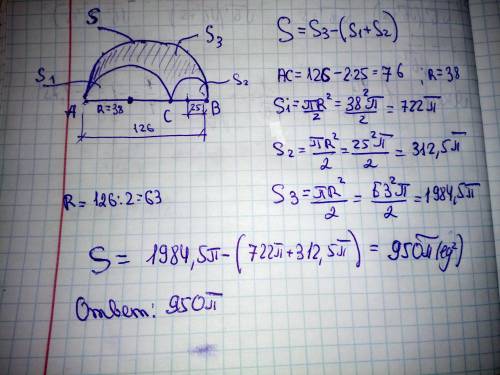 S
S₃
S₁
S₂
A R=38 C 25 B
126
S = S₃-(S₁+S₂)
AC=126-2·25=76 , R=38
S₁=πR²/2=38²π/2=722π
S₂=πR²/2=25²π/2=312,5π
R=126:2=63
S₃=πR²/2=63²π/2=1984,5π
S= 1984,5π-(722π+312,5π)=950π(eg²)
Ответ: 950π